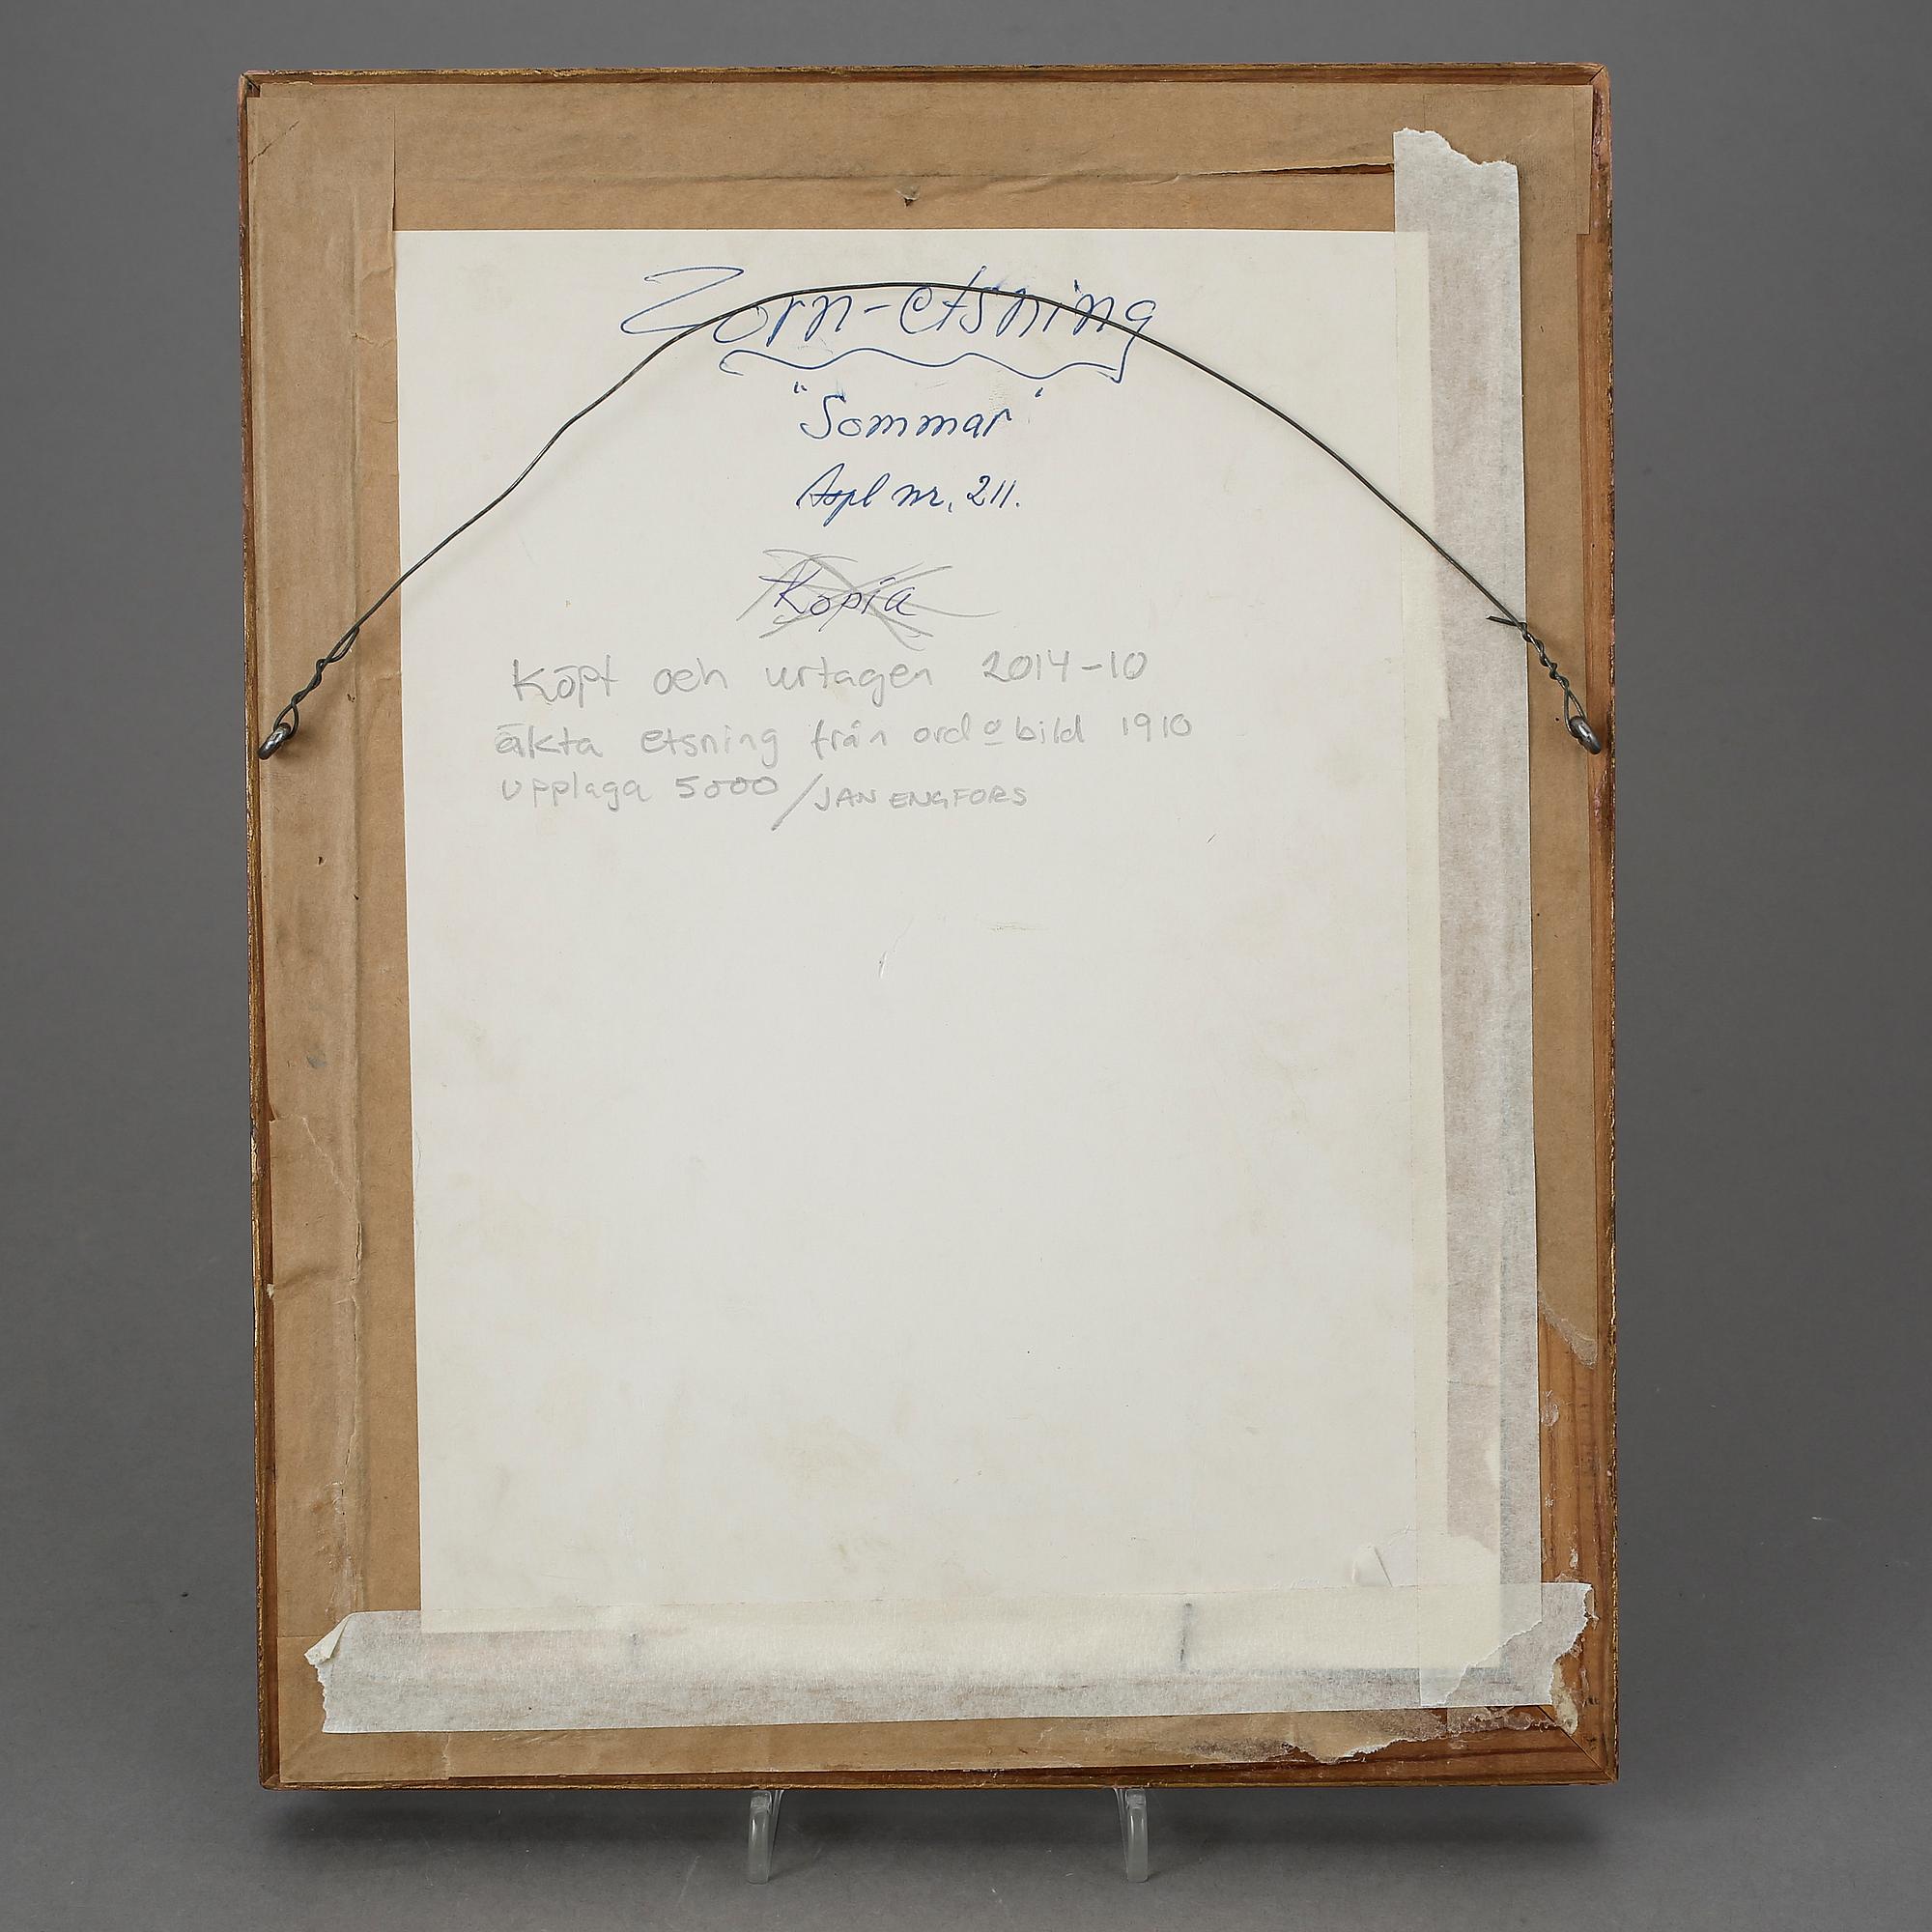 Zorn-etsning
"Sommar"
Aspl nr. 211.
Kopia
Köpt och urtagen 2014-10
äkta etsning från ord o bild 1910
upplaga 5000 / JAN ENGFORS